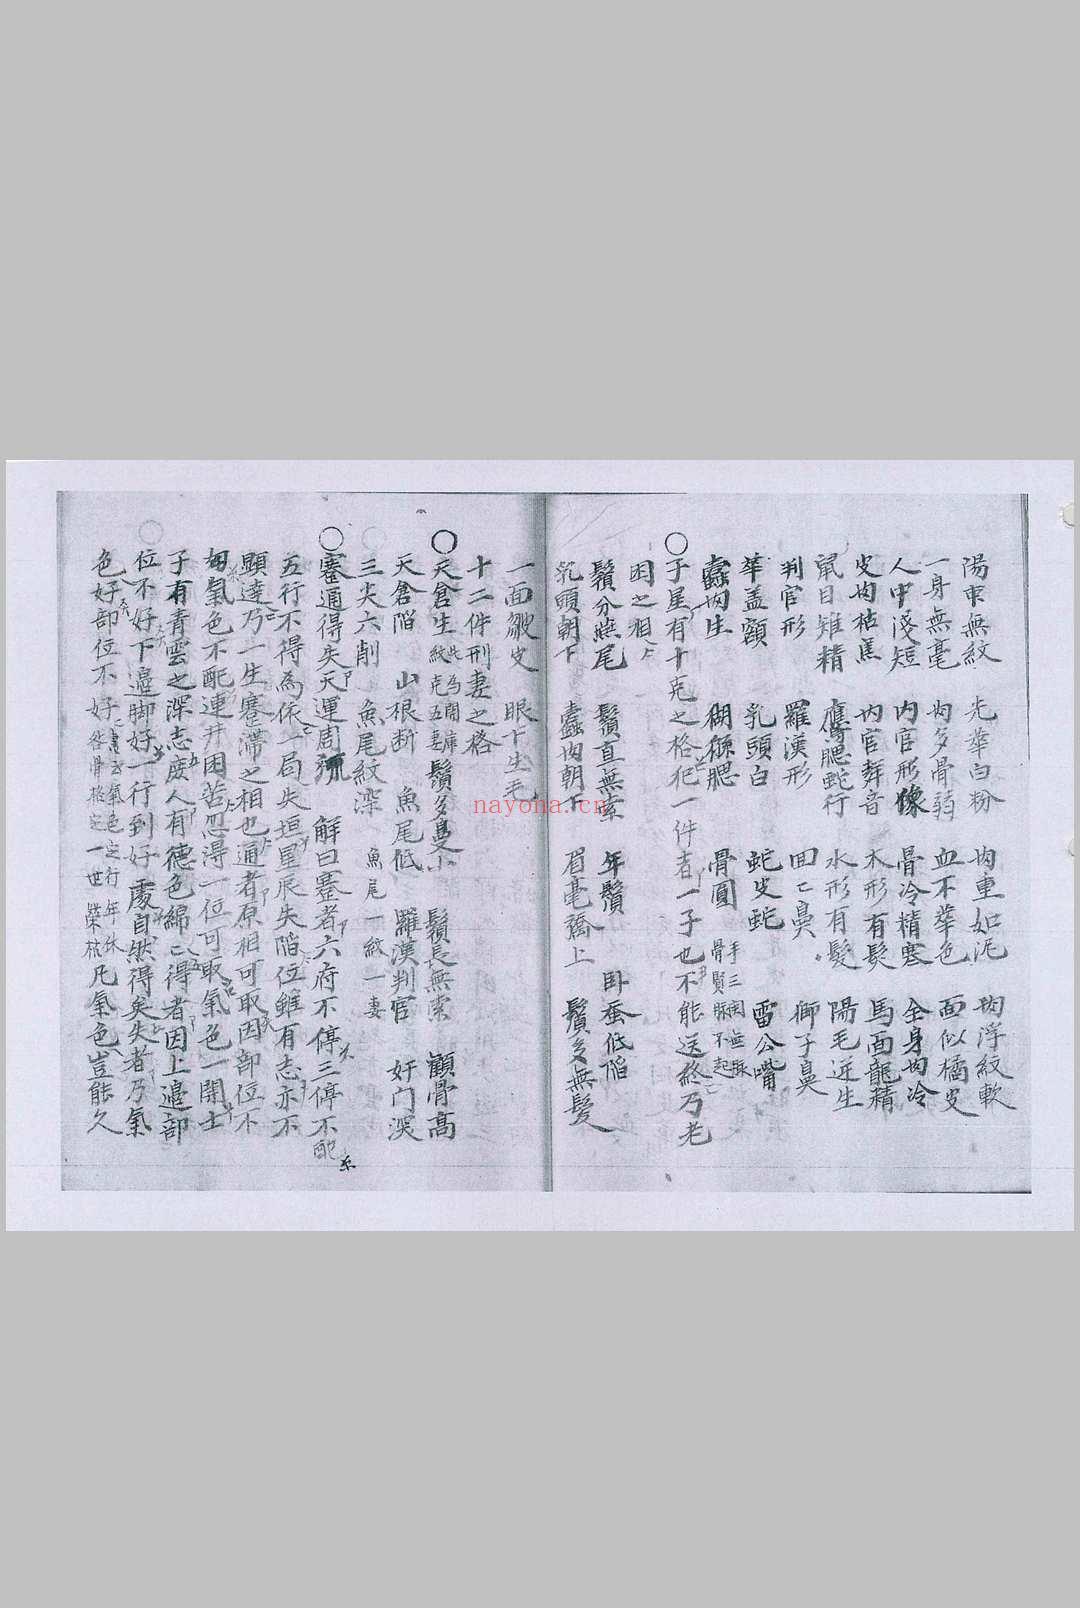 陽東無紋 光華白粉 肉重如泥 肉浮紋軟
一身無毫 肉多骨弱 血不華色 面似橘皮
人中淺短 內官形像 骨冷精寒 全身肉冷
皮肉枯焦 內官舞音 木形有髮 馬面龍精
鼠目雉精 鷹腮蛇行 水形有髮 陽毛逆生
判官形 羅漢形 回二鼻 獅子鼻
華盖額 乳頭白 蛇皮蛇 雷公嘴
蠱肉生 猢猻腮 骨圓
〇子星有十克之格犯一件者一子也不能送終乃老
困之相
鬚分燕尾 鬚直無索 年鬚 卧蚕低陷
乳頭朝下 蠱肉朝下 眉毫 上 鬢多無髮
一面皺皮 眼下生毛
十二件刑妻之格
〇天倉生紋此为開庫克五妻 鬚多 鬚長無索 顴骨高
天倉陷 山根断 魚尾低 羅漢判官 奸门深
三尖六削 魚尾紋深 魚尾一紋一妻
〇蹇通得失天運周流 解曰蹇者六府不停三停不配
五行不得為依一局失垣星辰失陷位雖有志亦不
顯達乃一生蹇滯之相也通者原相可取因部位不
匀氣色不配連井困苦忽得一位可取氣色一開士
子有青雲之深志庻人有德色綿二得者因上邉部
位不好下邉脚好一行到好處自然得矣失者乃氣
色好部位不好書云氣色定行年休咎骨格定一世榮枯凡氣色豈能久
nayona.cn